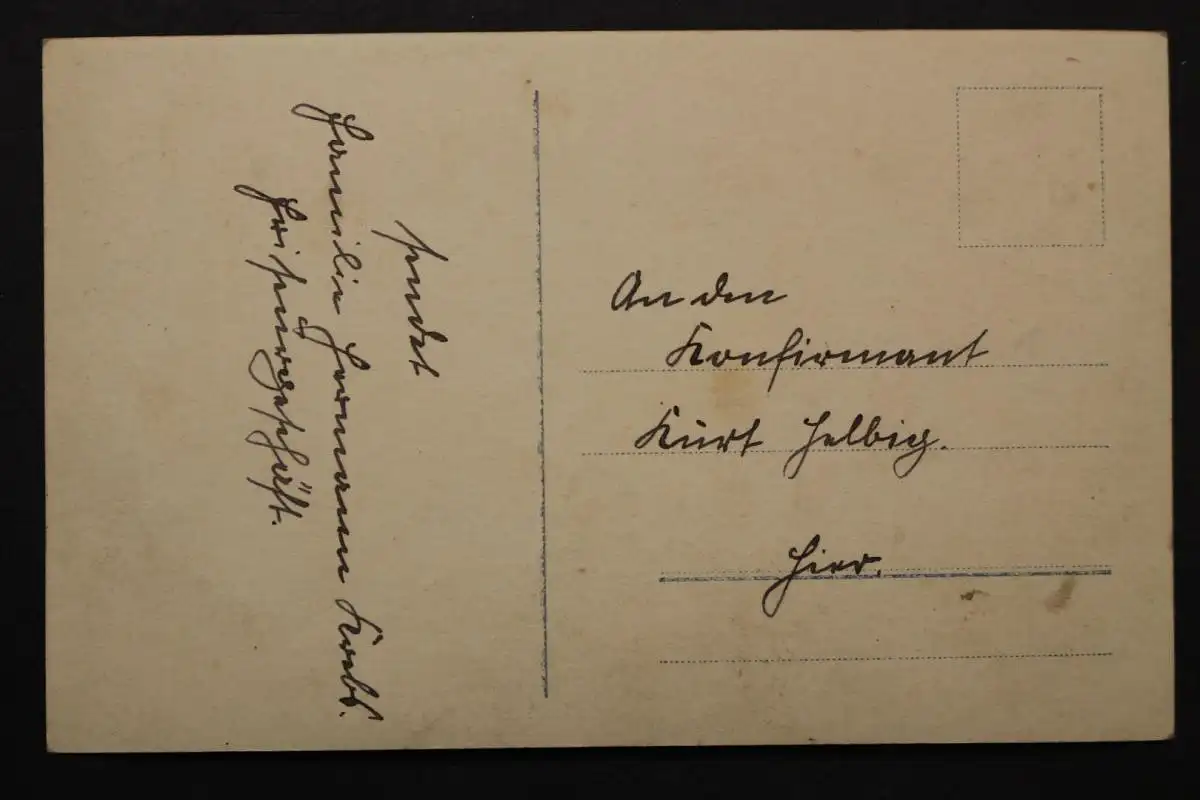 sendet
Familie Hermann Krebs.
Friseurgeschäft.
An den
Konfirmant
Kurt Helbig.
Hier.